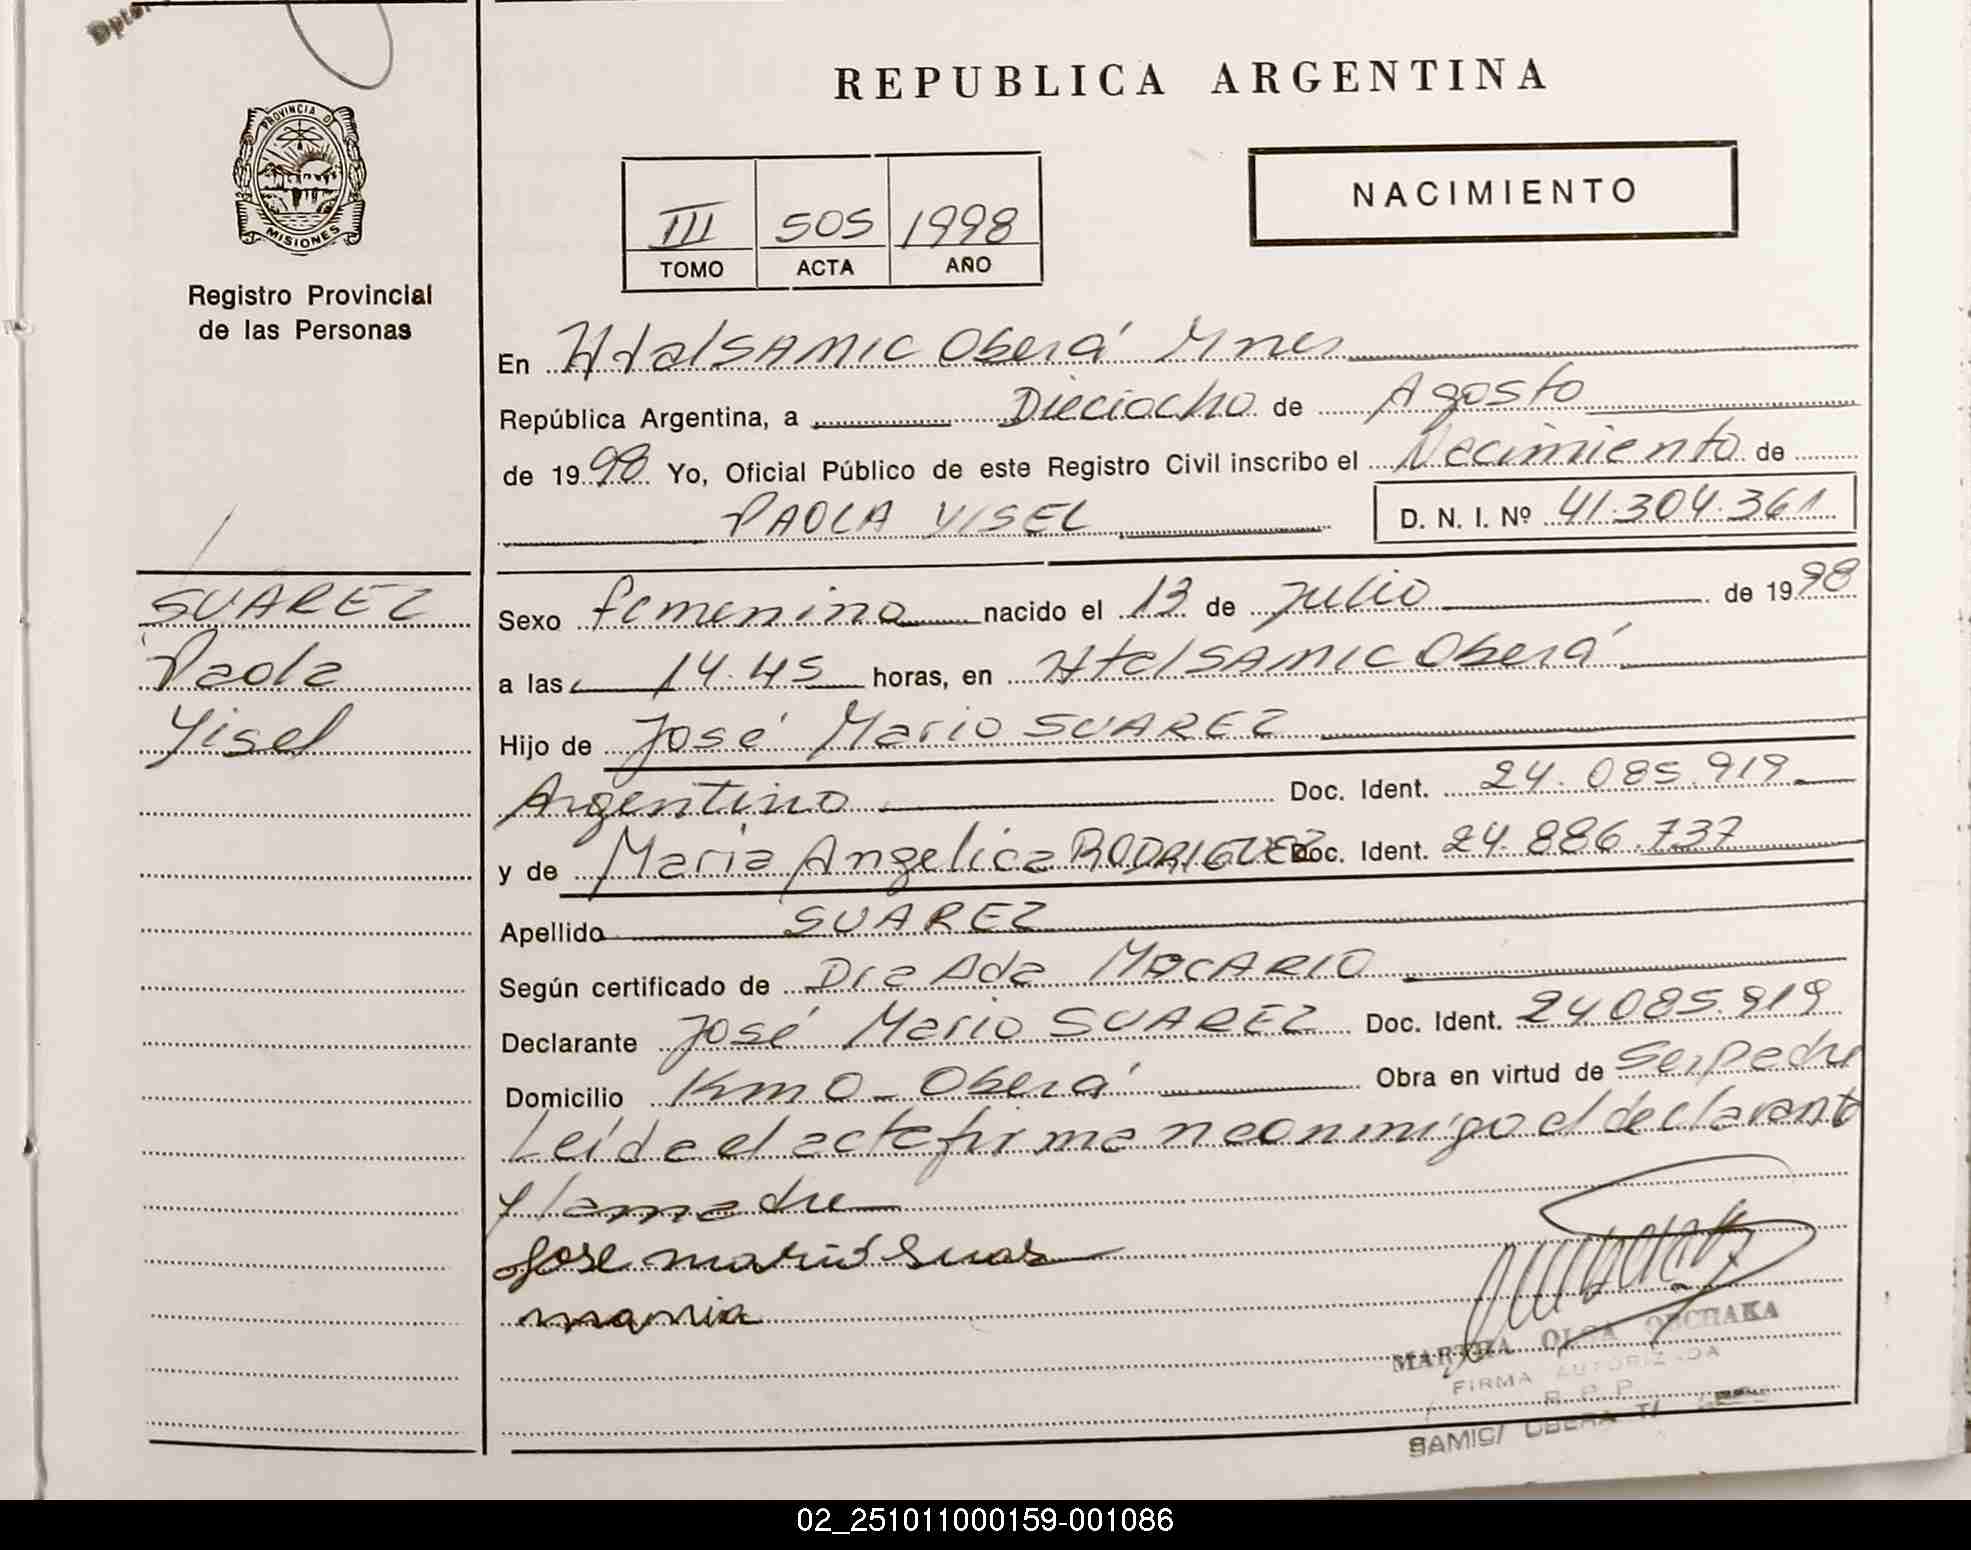 REPUBLICA ARGENTINA
PROVINCIA D
MISIONES
Registro Provincial
de las Personas
NACIMIENTO
III 505 1998
TOMO ACTA AÑO
En Htal SAMIC Oberá Mnes
República Argentina, a Dieciocho de Agosto
de 1998 Yo, Oficial Público de este Registro Civil inscribo el Nacimiento de
PAOLA YISEL D. N. I. Nº 41.304.361
SUAREZ
Paola
Yisel
Sexo femenino nacido el 13 de Julio de 1998
a las 14.45 horas, en Htal SAMIC Oberá
Hijo de José Mario SUAREZ
Argentino Doc. Ident. 24.085.919
y de Maria Angelica RODRIGUEZ Doc. Ident. 24.886.737
Apellido SUAREZ
Según certificado de Dra Ada MACARIO
Declarante José Mario SUAREZ Doc. Ident. 24.085.919
Domicilio Km 0 - Oberá Obra en virtud de Ser padre
Leída el acta firman conmigo el declarante
y la madre
Jose mario Suas
maria
MARTHA OLGA
FIRMA AUTORIZADA
R. P. P.
SAMIC/ OBERA T/
02_251011000159-001086